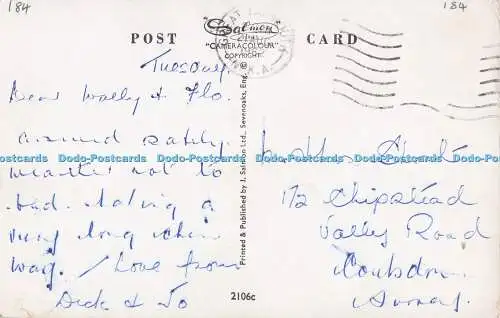 184
184
POST
Salmon
"CAMERACOLOUR"
COPYRIGHT
CARD
Tuesday
Dear Wally & Flo.
arrived safely.
weather not to
bad. having a
very long
way. / Love from
Dick & Jo
172 Chipstead
Valley Road
Coulsdon
Surrey.
Printed & Published by J. Salmon Ltd., Sevenoaks, Eng.
2106c
Dodo-Postcards Dodo-Postcards Dodo-Postcards Dodo-Postcards Dodo-Postcards
Dodo-Postcards Dodo-Postcards Dodo-Postcards Dodo-Postcards Dodo-Postcards